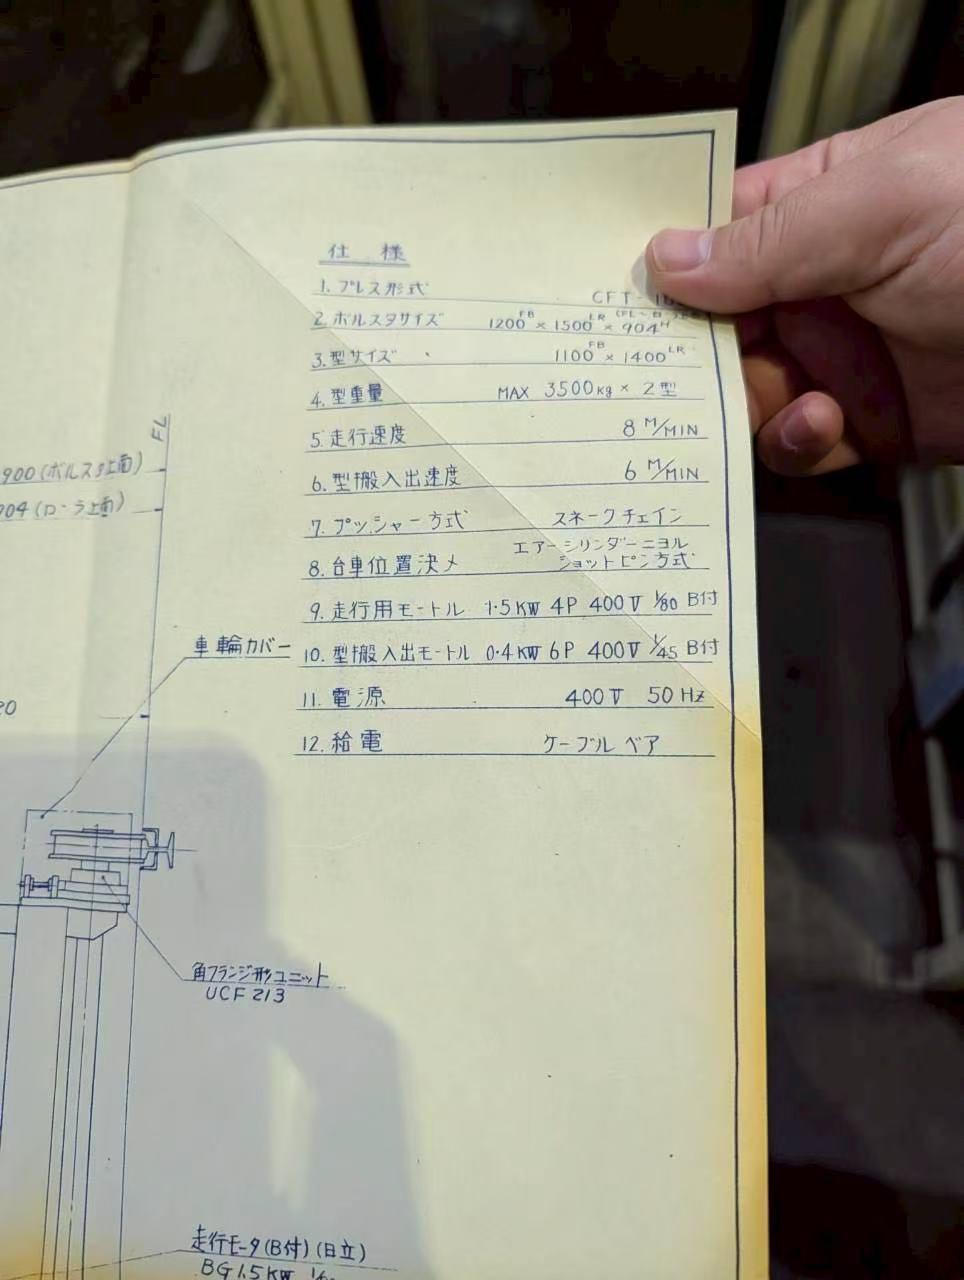 仕様
1. プレス形式 CFT-
2. ボルスタサイズ 1200FB × 1500LR × 904H
3. 型サイズ 1100FB × 1400LR
4. 型重量 MAX 3500kg × 2型
5. 走行速度 8 M/MIN
6. 型搬入出速度 6 M/MIN
7. プッシャー方式 スネークチェイン
8. 台車位置決メ エアーシリンダーニヨル
ショットピン方式
9. 走行用モートル 1.5KW 4P 400V 1/80 B付
10. 型搬入出モートル 0.4KW 6P 400V 1/45 B付
11. 電源 400V 50Hz
12. 給電 ケーブルベア
FL
900(ボルスタ上面)
904(ローラ上面)
車輪カバー
角フランジ形ユニット
UCF213
走行モータ(B付)(日立)
BG1.5KW